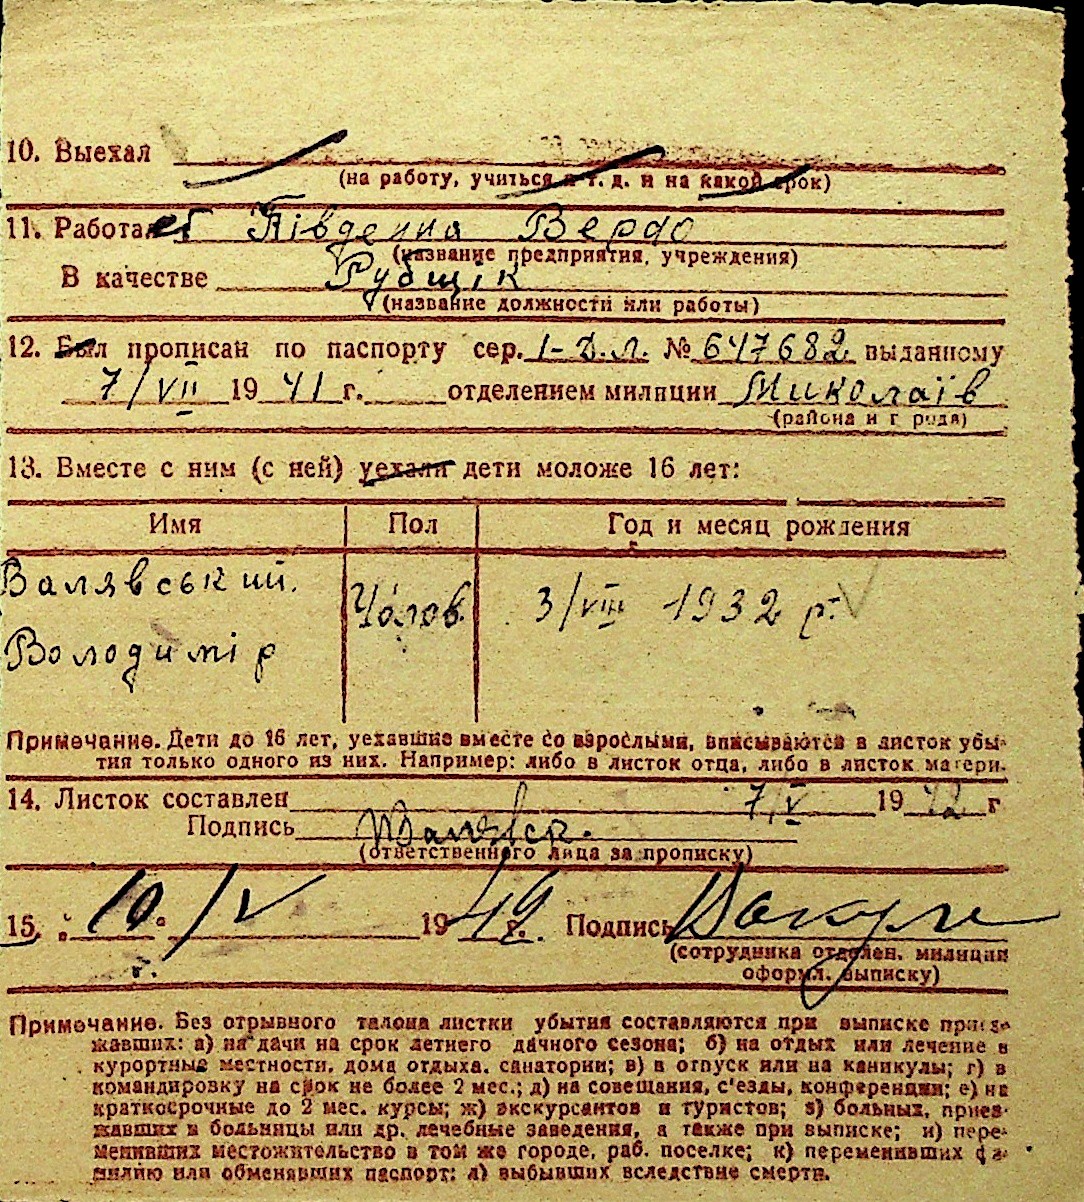 10. Выехал
(на работу, учиться и т. д. и на какой срок)
11. Работает Південна Верфо
(название предприятия, учреждения)
В качестве Рубщік
(название должности или работы)
12. Был прописан по паспорту сер. 1-д.л. № 647682 выданному
7/VII 1941 г. отделением милиции Миколаїв
(района и города)
13. Вместе с ним (с ней) уехали дети моложе 16 лет:
Имя Пол Год и месяц рождения
Валявський Чолов. 3/VIII 1932 р.
Володимір
Примечание. Дети до 16 лет, уехавшие вместе со взрослыми, вписываются в листок убы-
тия только одного из них. Например: либо в листок отца, либо в листок матери.
14. Листок составлен 7/V 1942 г
Подпись
(ответственного лица за прописку)
15. „10" V 1942 Подпись
г.
(сотрудника отделен. милиции
оформл. выписку)
Примечание. Без отрывного талона листки убытия составляются при выписке приез-
жавших: а) на дачи на срок летнего дачного сезона; б) на отдых или лечение в
курортные местности, дома отдыха, санатории; в) в отпуск или на каникулы; г) в
командировку на срок не более 2 мес.; д) на совещания, с'езды, конференции; е) на
краткосрочные до 2 мес. курсы; ж) экскурсантов и туристов; з) больных, приез-
жавших в больницы или др. лечебные заведения, а также при выписке; и) пере-
менивших местожительство в том же городе, раб. поселке; к) переменивших фа-
милию или обменявших паспорт; л) выбывших вследствие смерти.